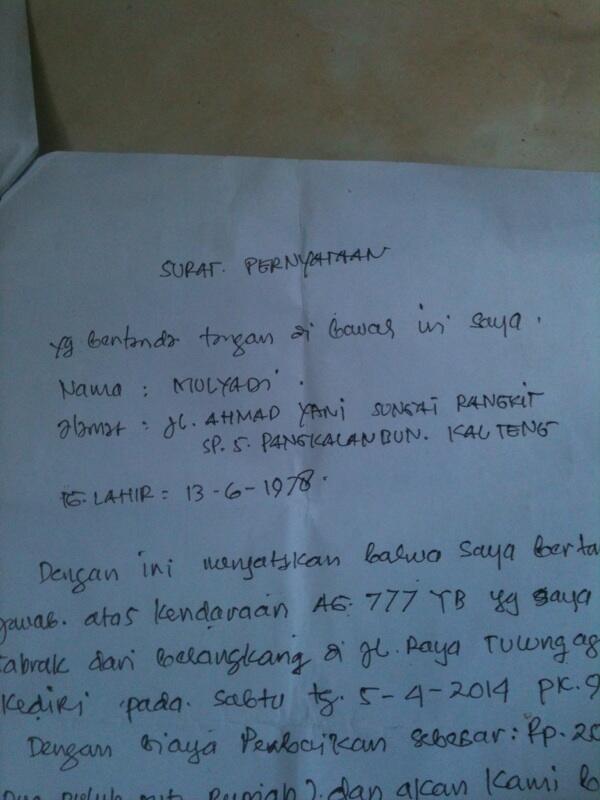 SURAT. PERNYATAAN
yg bertanda tangan di bawas ini saya.
Nama : MULYADI.
Alamat : Jl. AHMAD YANI SUNGAI RANGKIT
SP. 5. PANGKALANBUN. KALTENG
TG. LAHIR = 13-6-1978.
Dengan ini menyatakan bahwa saya berta
jawab. atas kendaraan AG. 777 YB yg saya
tabrak dari belangkang di Jl. Raya Tulungag
Kediri pada. sabtu tg. 5-4-2014 PK. 9
Dengan biaya Perbaikan sebesar: Rp. 20
Rupiah). dan akan kami b